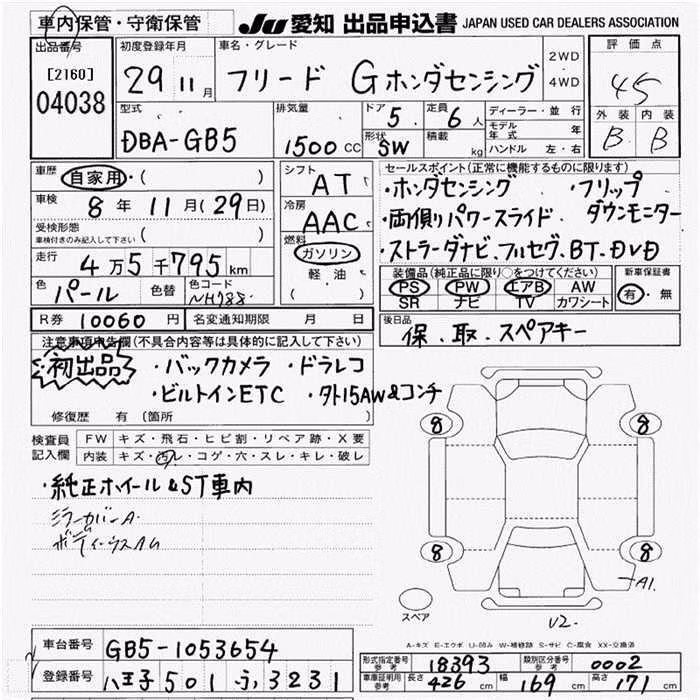 車内保管・守衛保管
JU 愛知 出品申込書 JAPAN USED CAR DEALERS ASSOCIATION
出品番号
[2160]
04038
初度登録年月
29 11月
車名・グレード
フリード Gホンダセンシング
2WD
4WD
評価点
4.5
外装 内装
B B
型式
DBA-GB5
排気量
1500CC
ドア 5
定員 6人
形状 SW
積載 kg
ディーラー・並行
モデル年式 年
ハンドル 左・右
車歴 自家用・( )
車検 8年11月(29日)
受検形態
車検付きのみ記入して下さい ( )
走行 4万5千795km
色 パール 色替 色コード NH788
シフト AT
冷房 AAC
燃料
ガソリン
軽油
( )
セールスポイント(正常に機能するものに限ります)
・ホンダセンシング ・フリップ
・両側パワースライド ダウンモニター
・ストラーダナビ.フルセグ.BT.DVD
装備品(純正品に限り○をつけてください)
PS PW エアB AW
SR ナビ TV カワシート
新車保証書
有・無
R券 10060円 名変通知期限 月 日
後日品
保.取.スペアキー
注意事項申告欄(不具合内容等は具体的に記入して下さい)
初出品 ・バックカメラ ・ドラレコ
・ビルトインETC ・タト15AW&コンチ
修復歴 有(箇所
検査員記入欄
FW キズ・飛石・ヒビ割・リペア跡・X要
内装 キズ・汚レ・コゲ・穴・スレ・キレ・破レ
・純正ホイール&ST車内
ミラーカバーA.
8 8
8 8
A1.
スペア
U2.
A-キズ E-エクボ U-凹み W-補修跡 S-サビ C-腐食 XX-交換済
車台番号 GB5-1053654
登録番号 八王子 501 ふ 3231
形式指定番号 参考 18393
類別区分番号 参考 0002
車庫証明用 参考 長さ 426 cm 幅 169 cm 高さ 171 cm